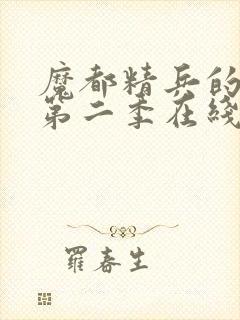 魔都精兵的
第二季在綫
羅春生